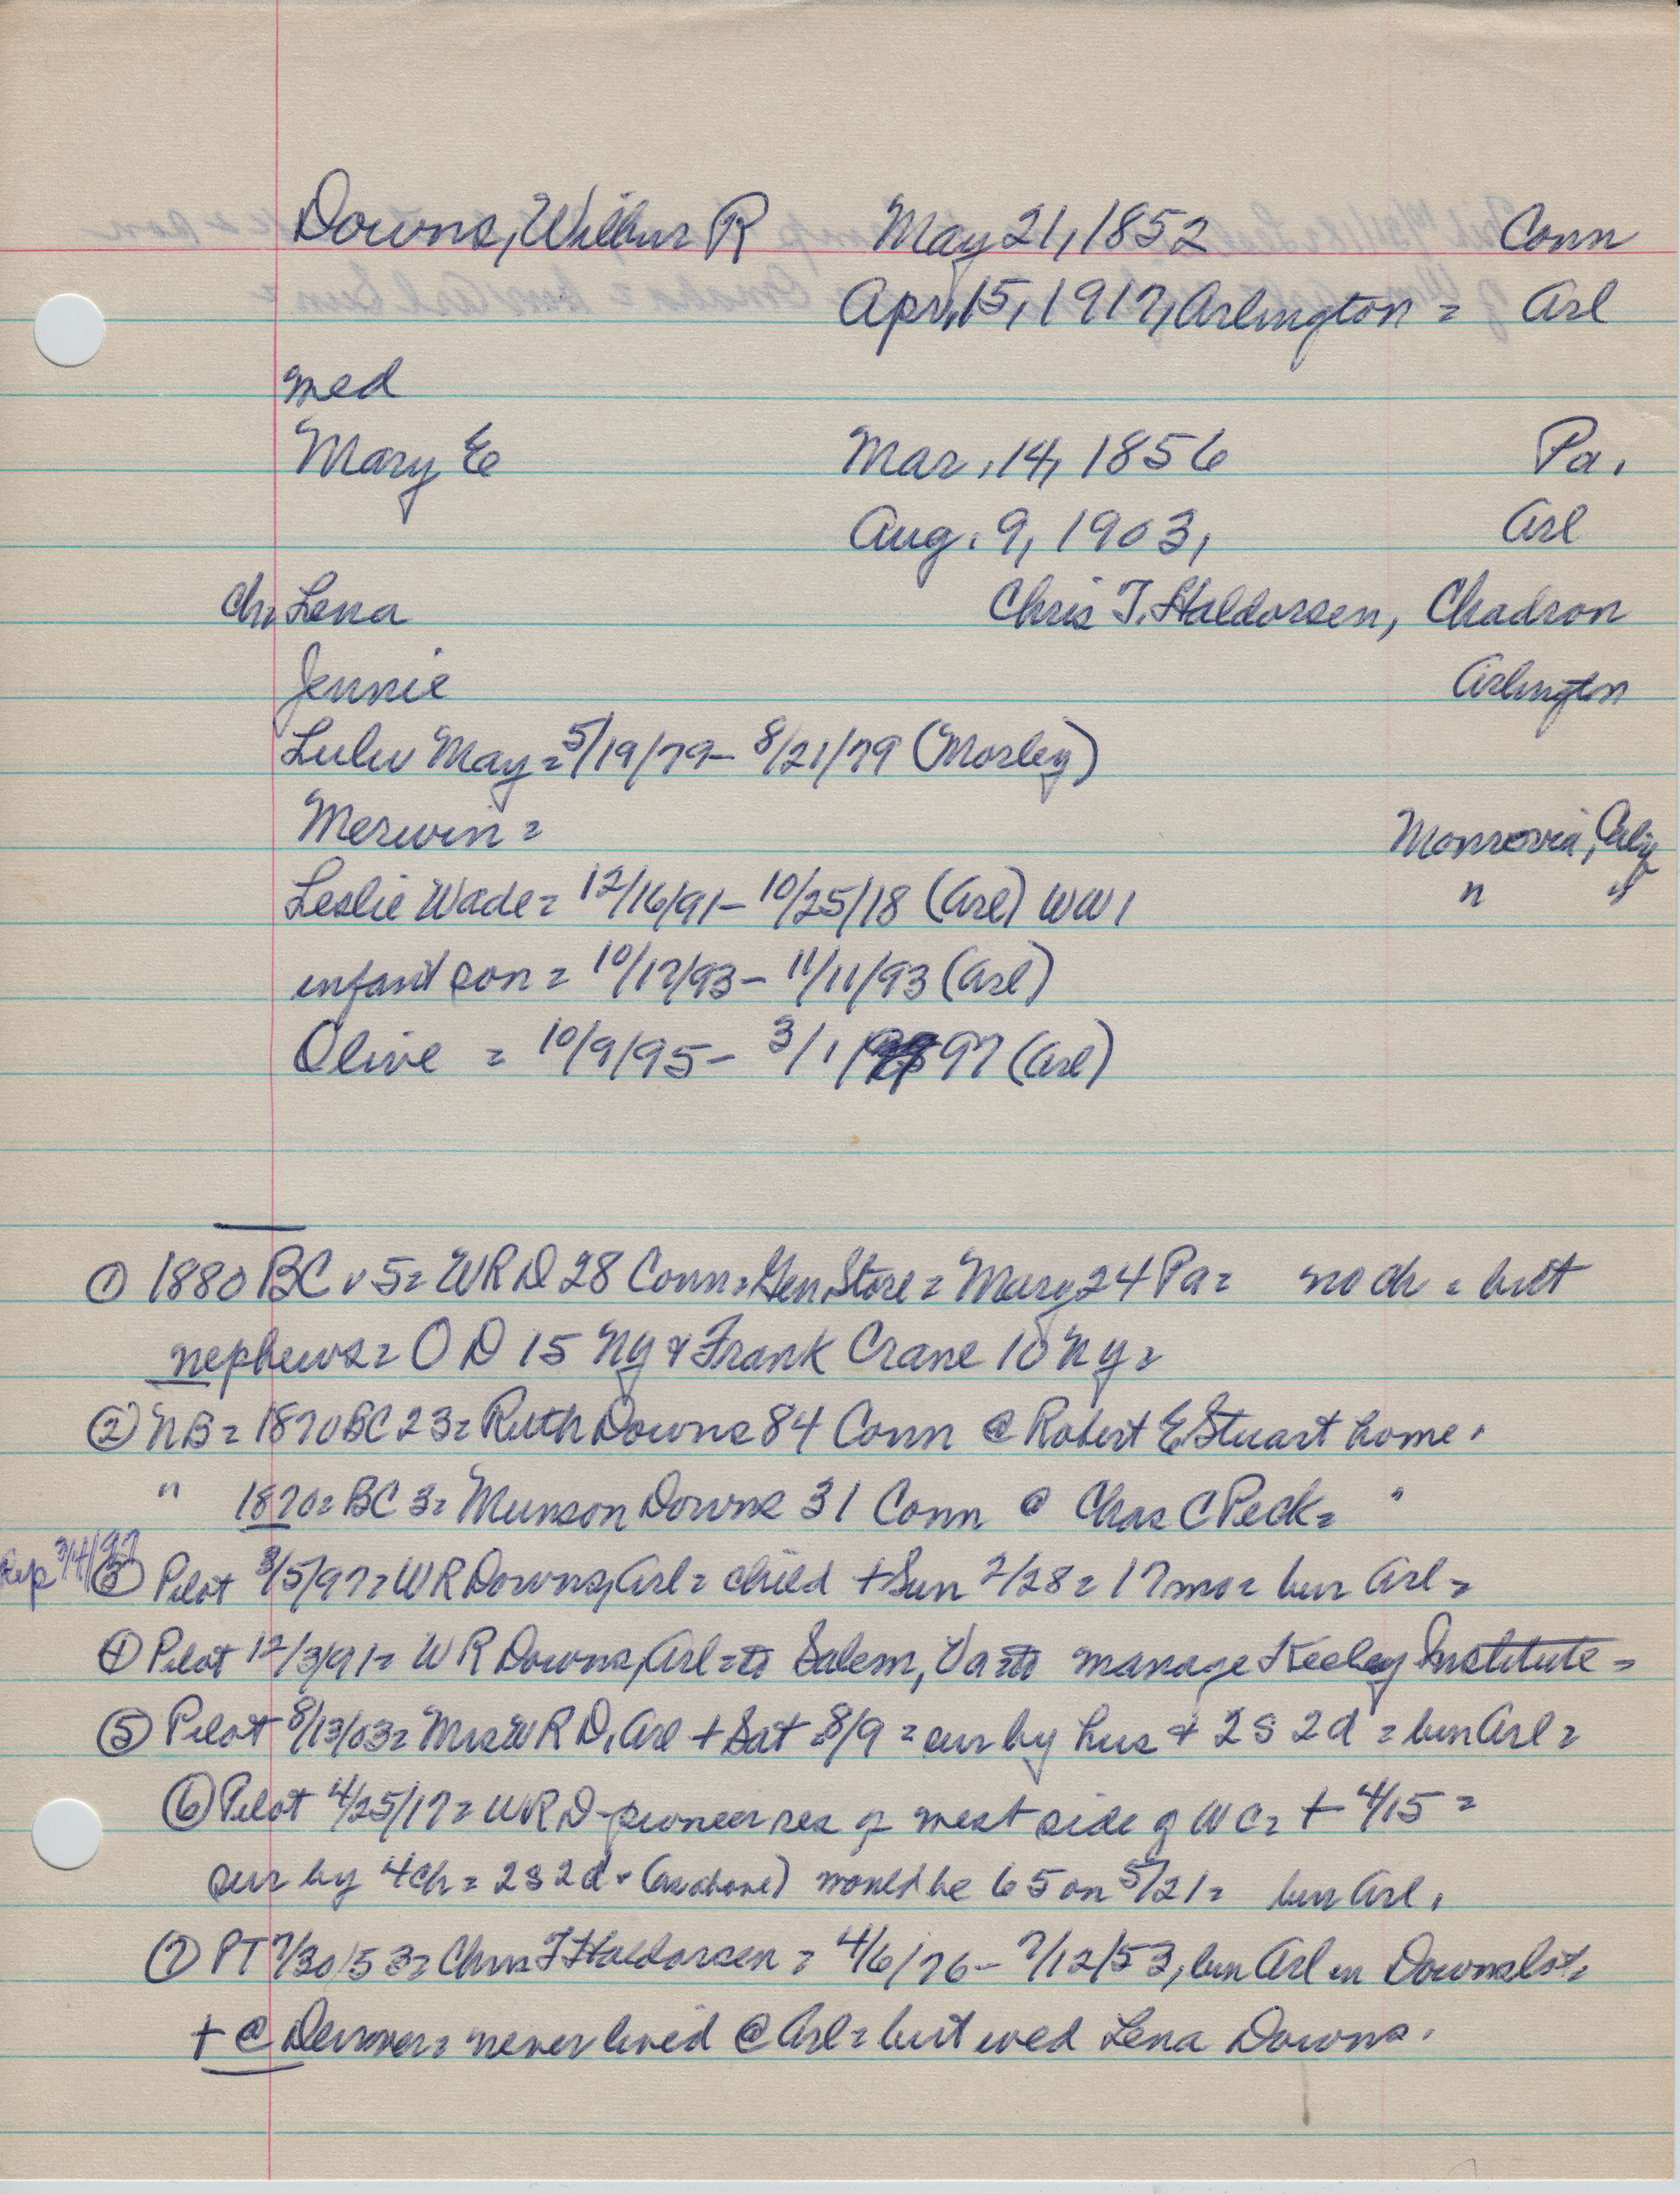 Downs, Wilbur R May 21, 1852 Conn
Apr. 15, 1917, Arlington = Arl
med
Mary E Mar. 14, 1856 Pa.
Aug. 9, 1903, Arl
ch. Lena Chris T. Haldorsen, Chadron
Jennie Arlington
Lulu May = 5/19/79 - 8/21/79 (Mosley)
Merwin = Monrovia, Calif
Leslie Wade = 12/16/91 - 10/25/18 (Arl) WW1 " "
infant son = 10/17/93 - 11/11/93 (Arl)
Olive = 10/9/95 - 3/1/97 (Arl)
① 1880 BC v 5 = WRD 28 Conn = Gen. Store = Mary 24 Pa = no ch = but
nephews = O D 15 NY & Frank Crane 10 NY =
② NB = 1870 BC 23 = Ruth Downs 84 Conn @ Robert E Stuart home.
" 1870 = BC 3 = Munson Downs 31 Conn @ Chas C Peck = "
Rep 3/4/97
③ Pilot 3/5/97 = W R Downs, Arl = child + Sun 2/28 = 17 mo = bur Arl =
④ Pilot 12/3/91 = W R Downs, Arl = to Salem, Va to manage Keeley Institute =
⑤ Pilot 8/13/03 = Mrs W R D, Arl + Sat 8/9 = sur by hus + 2 s 2 d = bur Arl =
⑥ Pilot 4/25/17 = W R D - pioneer res of west side of W C = + 4/15 =
sur by 4 ch = 2 s 2 d - (as above) would be 65 on 5/21 = bur Arl.
⑦ PT 7/30/53 = Chris T Haldorsen = 4/6/76 - 7/12/53, bur Arl in Downs lot.
+ @ Denver = never lived @ Arl = but wed Lena Downs.